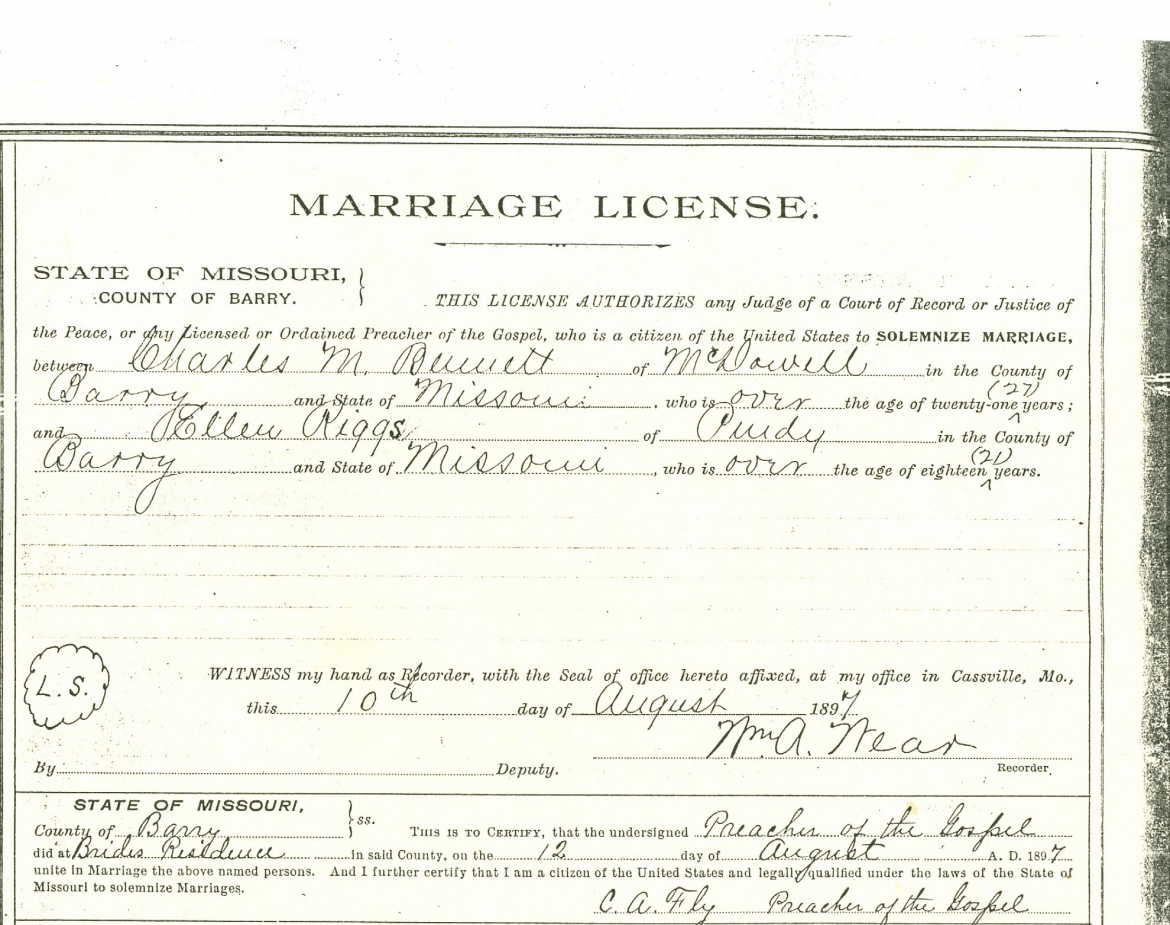 MARRIAGE LICENSE.
STATE OF MISSOURI,
COUNTY OF BARRY.
THIS LICENSE AUTHORIZES any Judge of a Court of Record or Justice of
the Peace, or any Licensed or Ordained Preacher of the Gospel, who is a citizen of the United States to SOLEMNIZE MARRIAGE,
between Charles M. Bennett of McDowell in the County of
Barry and State of Missouri, who is over the age of twenty-one (27) years;
and Ellen Riggs of Purdy in the County of
Barry and State of Missouri, who is over the age of eighteen (21) years.
L. S.
WITNESS my hand as Recorder, with the Seal of office hereto affixed, at my office in Cassville, Mo.,
this 10th day of August 1897
Wm. A. Wear
By Deputy. Recorder.
STATE OF MISSOURI,
County of Barry ss. THIS IS TO CERTIFY, that the undersigned Preacher of the Gospel
did at Brides Residence in said County, on the 12 day of August A. D. 1897
unite in Marriage the above named persons. And I further certify that I am a citizen of the United States and legally qualified under the laws of the State of
Missouri to solemnize Marriages.
C. A. Fly Preacher of the Gospel